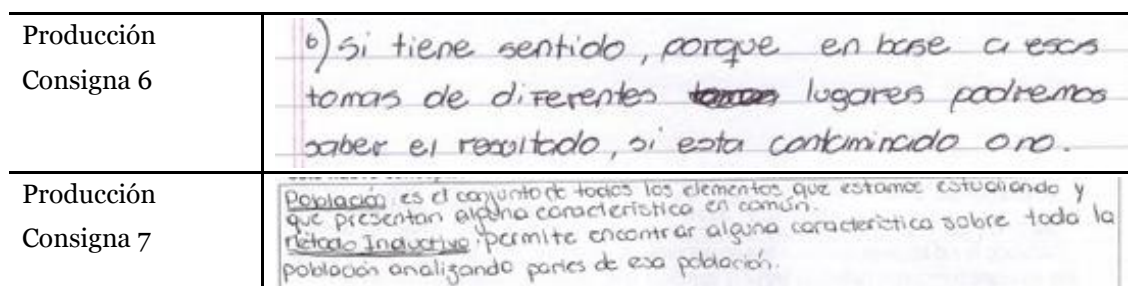 Producción
Consigna 6
6) si tiene sentido, porque en base a esas
tomas de diferentes lugares podremos
saber el resultado, si esta contaminado o no.
Producción
Consigna 7
Población: es el conjunto de todos los elementos que estamos estudiando y
que presentan alguna característica en común.
Método Inductivo: permite encontrar alguna característica sobre toda la
población analizando partes de esa población.